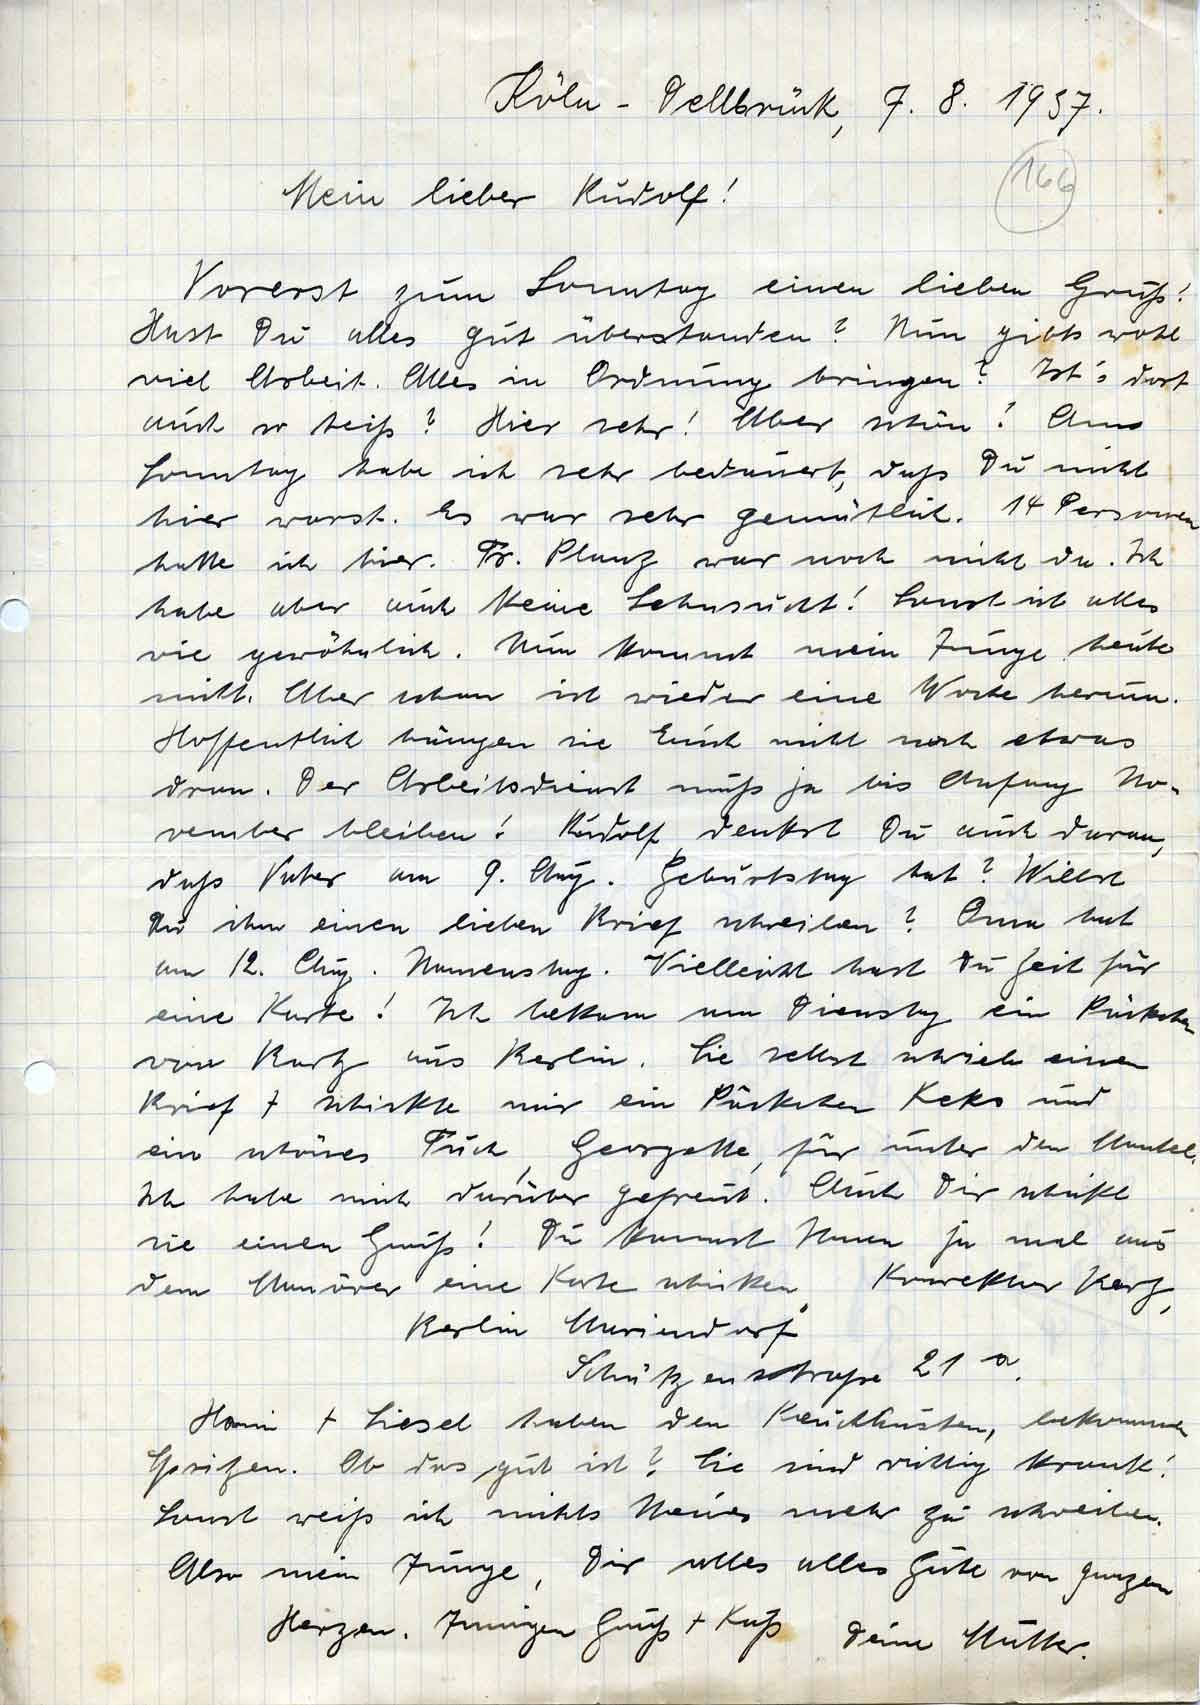 Köln - Dellbrück, 7. 8. 1937.
166
Mein lieber Rudolf!
Vorerst zum Sonntag einen lieben Gruß!
Hast Du alles gut überstanden? Nun gibts wohl
viel Arbeit. Alles in Ordnung bringen? Ist's dort
auch so heiß? Hier sehr! Aber schön! Am
Sonntag habe ich sehr bedauert, daß Du nicht
hier warst. Es war sehr gemütlich. 14 Personen
hatte ich hier. Fr. Planz war noch nicht da. Ich
habe aber auch keine Sehnsucht! Sonst ist alles
wie gewöhnlich. Nun kommt mein Junge heute
nicht. Aber schon ist wieder eine Woche herum.
Hoffentlich hängen sie Euch nicht noch etwas
dran. Der Arbeitsdienst muß ja bis Anfang No-
vember bleiben! Rudolf, denkst Du auch daran,
daß Vater am 9. Aug. Geburtstag hat? Willst
Du ihm einen lieben Brief schreiben? Oma hat
am 12. Aug. Namenstag. Vielleicht hast Du Zeit für
eine Karte! Ich bekam am Dienstag ein Päckchen
von aus Berlin. Sie selbst schrieb einen
Brief + schickte mir ein Päckchen Keks und
ein schönes Tuch, Georgette, für unter den Mantel.
Ich habe mich darüber gefreut. Auch Dir schickt
sie einen Gruß! Du kannst Ihnen ja mal aus
dem Manöver eine Karte schicken. Konrektor
Berlin Mariendorf
Schützenstraße 21 a.
Hanni + Liesel haben den Keuchhusten, bekommen
Spritzen. Ob das gut ist? Sie sind richtig krank!
Sonst weiß ich nichts Neues mehr zu schreiben.
Also mein Junge, Dir alles alles Gute von ganzem
Herzen. Innigen Gruß + Kuß Deine Mutter.